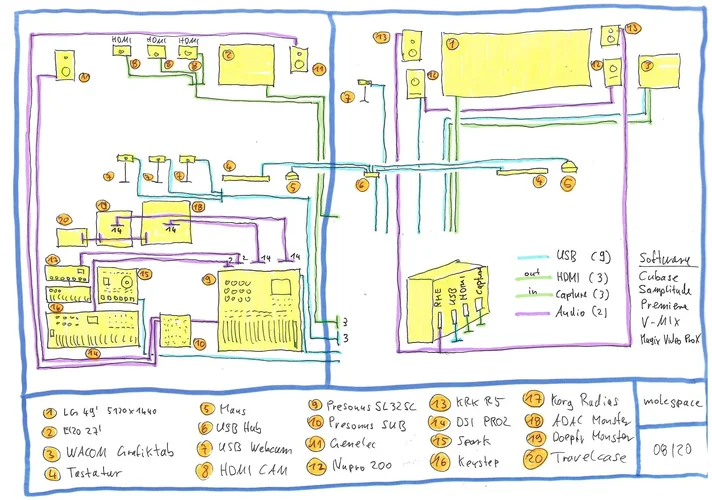 HDMI HDMI HDMI
8 8 8
2
11
11
13
1
13
12
12
3
7
7 7 7
4
5
6
4
5
20
19
18
14
14
17
2 2 14 14
15
9
16
14
10
3
3
RME
USB
HDMI
Capture
USB (9)
out HDMI (3)
in Capture (3)
Audio (2)
Software
Cubase
Samplitude
Premiere
V-MIX
Magix Video ProX
1 LG 49' 5120x1440
2 EIZO 27'
3 WACOM Grafiktab
4 Tastatur
5 Maus
6 USB Hub
7 USB Webcam
8 HDMI CAM
9 Presonus SL32SC
10 Presonus SUB
11 Genelec
12 Nupro 200
13 KRK R5
14 DSI PRO2
15 Spark
16 Keystep
17 Korg Radias
18 ADAC Monster
19 Doepfer Monster
20 Travelcase
molespace
08/20